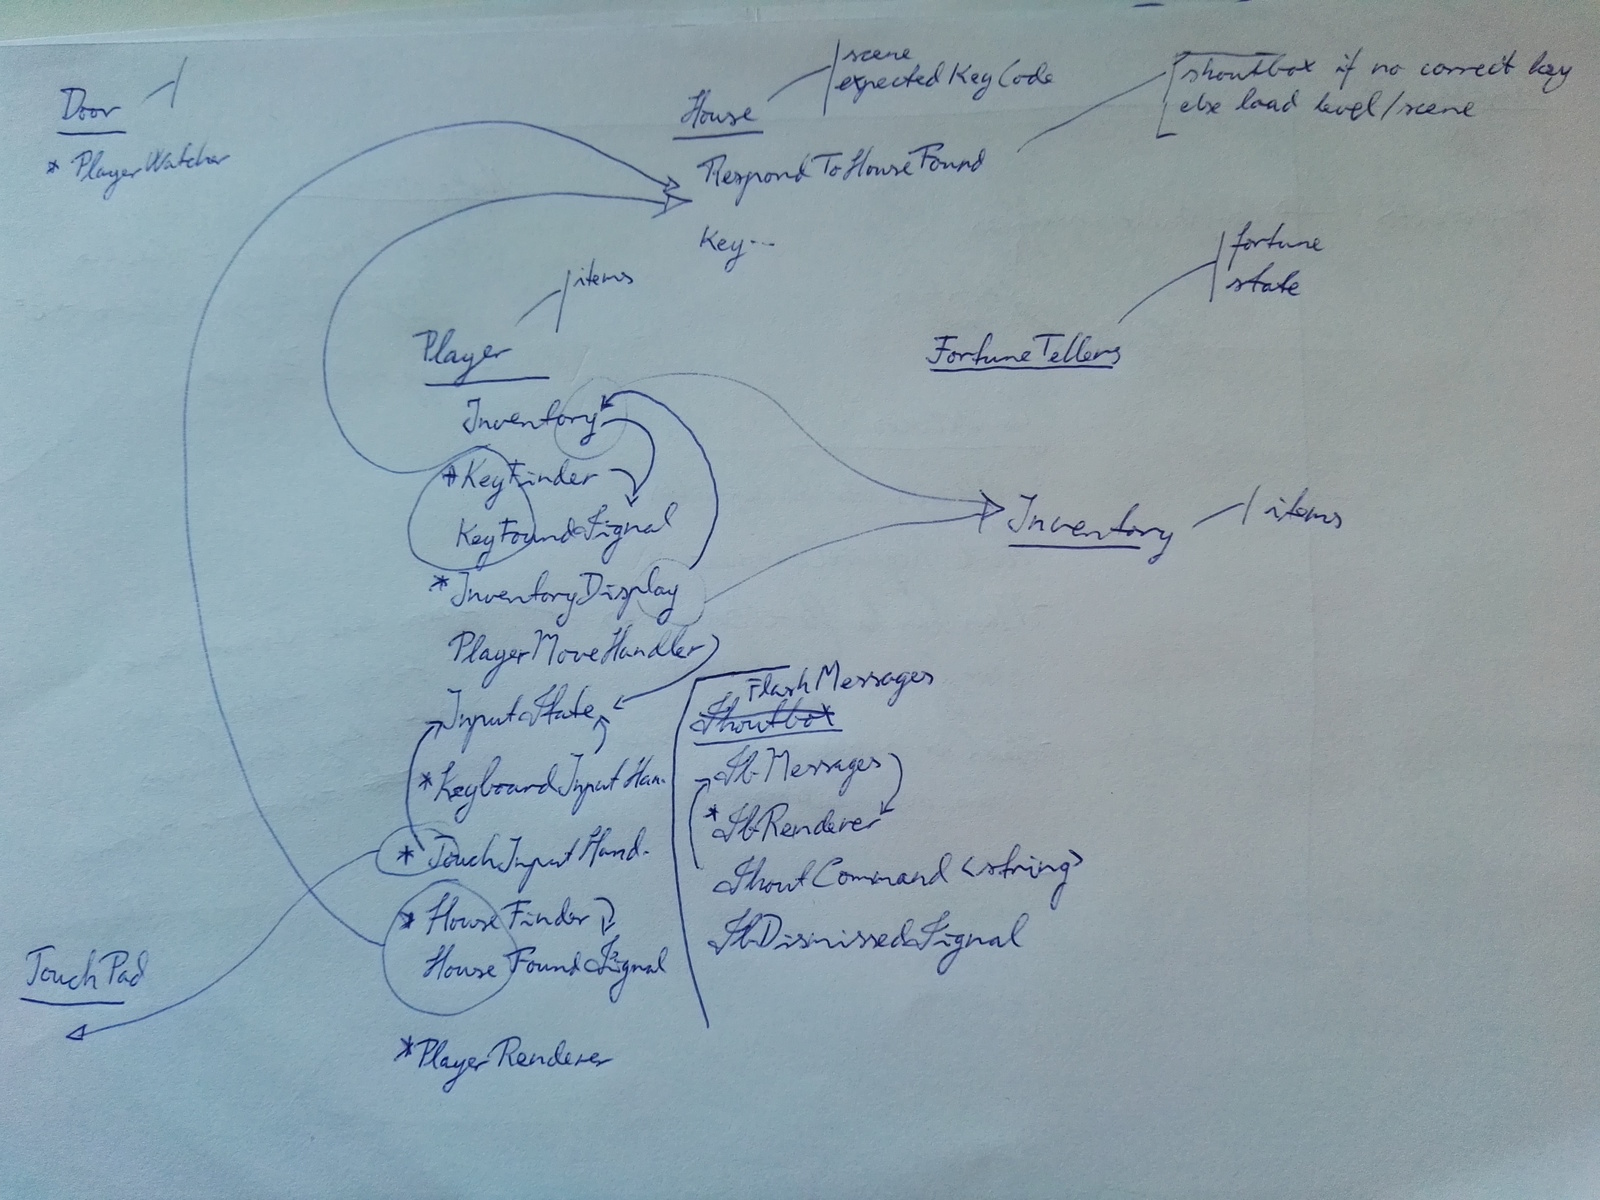 Door
* PlayerWatcher
House
scene
expected KeyCode
RespondToHouseFound
shoutbox if no correct key
else load level/scene
Key...
Player
items
Inventory
* KeyFinder
KeyFoundSignal
* InventoryDisplay
PlayerMoveHandler
InputState
* KeyboardInputHan.
* TouchInputHand.
* HouseFinder
HouseFoundSignal
* PlayerRenderer
FortuneTellers
fortune
state
Inventory
items
FlashMessages
Shoutbox
SbMessages
* SbRenderer
ShoutCommand <string>
SbDismissedSignal
TouchPad